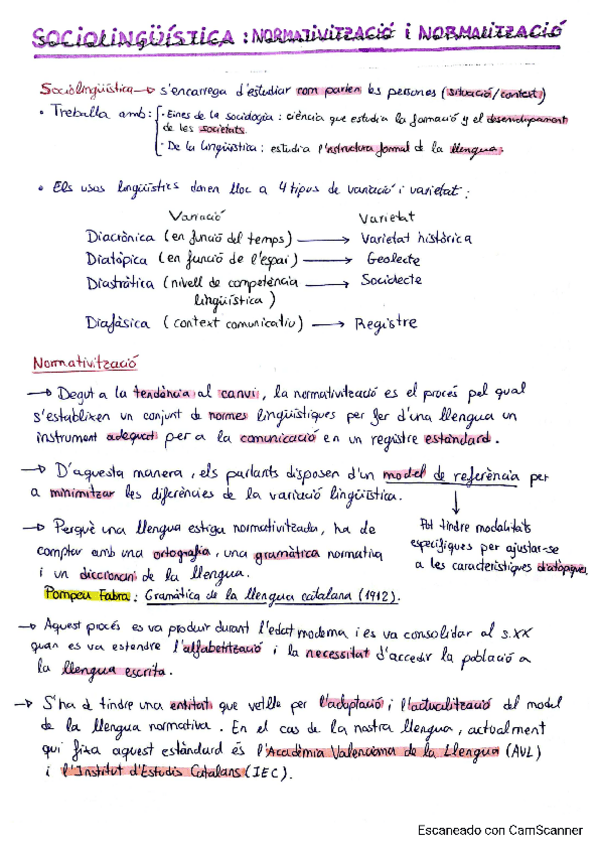 SOCIOLINGÜÍSTICA : NORMATIVITZACIÓ i NORMALITZACIÓ
Sociolingüística → s'encarrega d'estudiar com parlen les persones (situació/context)
• Treballa amb: · Eines de la sociologia : ciència que estudia la formació y el desenvolupament
de les societats.
· De la lingüística : estudia l'estructura formal de la llengua.
• Els usos lingüístics donen lloc a 4 tipus de variació i varietat :
Variació Varietat
Diacrònica (en funció del temps) → Varietat històrica
Diatòpica (en funció de l'espai) → Geolecte
Diastràtica (nivell de competència → Sociolecte
lingüística)
Diafàsica (context comunicatiu) → Registre
Normativització
→ Degut a la tendència al canvi, la normativització es el procés pel qual
s'establixen un conjunt de normes lingüístiques per fer d'una llengua un
instrument adequat per a la comunicació en un registre estàndard.
→ D'aquesta manera, els parlants disposen d'un model de referència per
a minimitzar les diferències de la variació lingüística.
→ Perquè una llengua estiga normativitzada, ha de
comptar amb una ortografia, una gramàtica normativa
i un diccionari de la llengua.
Pot tindre modalitats
específiques per ajustar-se
a les característiques diatòpiques.
Pompeu Fabra: Gramàtica de la llengua catalana (1912).
→ Aquest procés es va produir durant l'edat moderna i es va consolidar al s.XX
quan es va estendre l'alfabetització i la necessitat d'accedir la població a
la llengua escrita.
→ S'ha de tindre una entitat que vetlle per l'adaptació i l'actualització del model
de la llengua normativa. En el cas de la nostra llengua, actualment
qui fixa aquest estàndard és l'Acadèmia Valenciana de la Llengua (AVL)
i l'Institut d'Estudis Catalans (IEC).
Escaneado con CamScanner